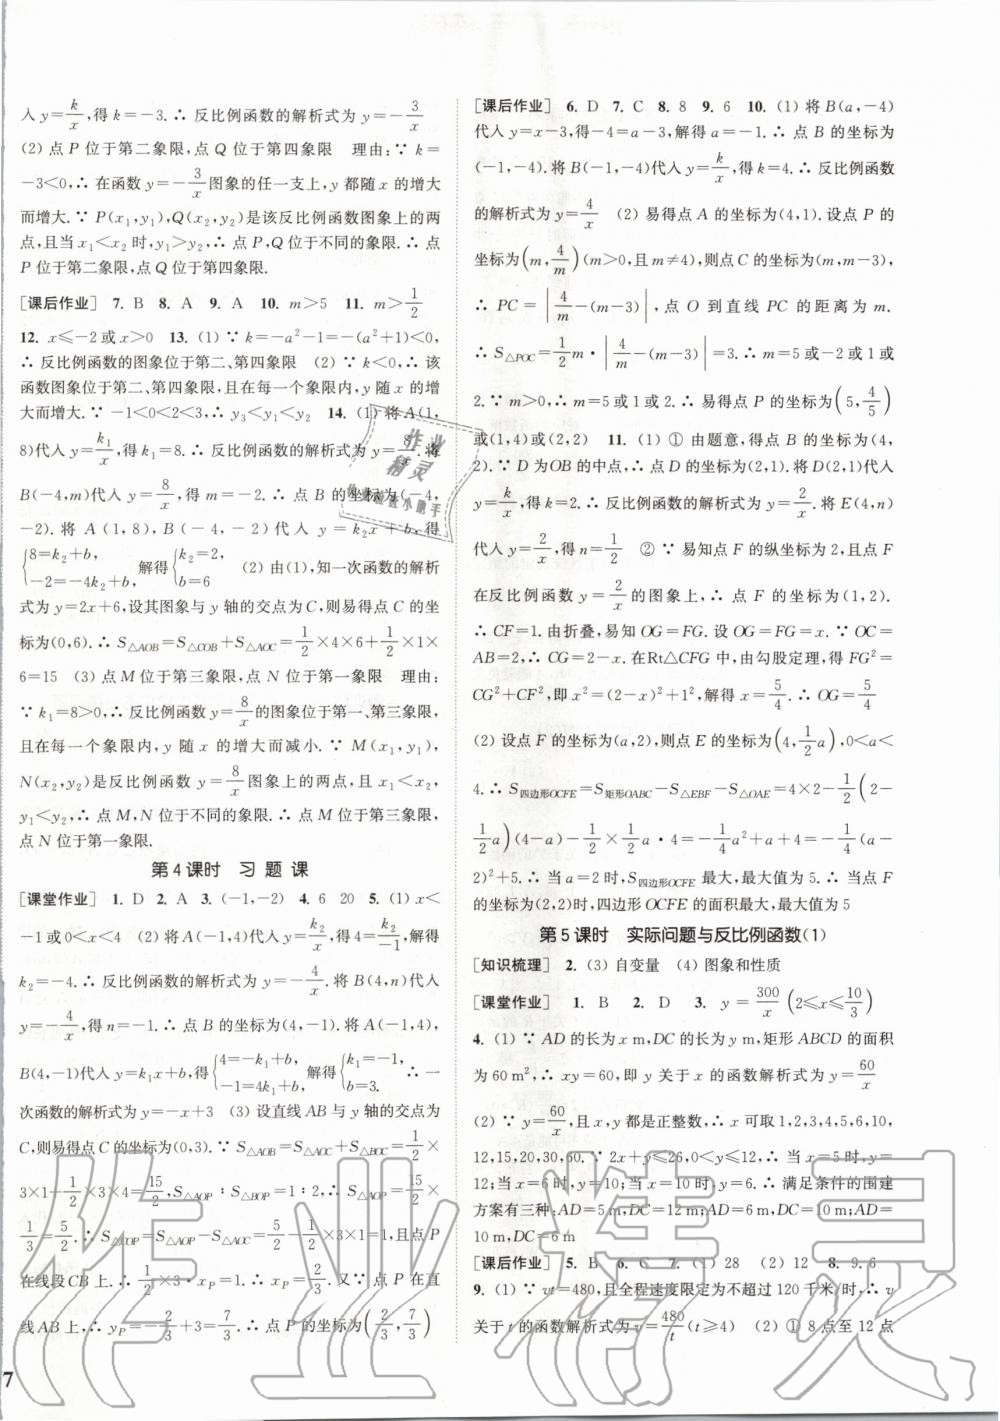 入 y=k/x,得 k=-3.∴ 反比例函数的解析式为 y=-3/x
(2) 点 P 位于第二象限,点 Q 位于第四象限 理由:∵ k=
-3<0,∴ 在函数 y=-3/x 图象的任一支上,y 都随 x 的增大
而增大.∵ P(x₁,y₁),Q(x₂,y₂)是该反比例函数图象上的两
点,且当 x₁<x₂ 时,y₁>y₂,∴ 点 P,Q 位于不同的象限.∴ 点
P 位于第二象限,点 Q 位于第四象限.
[课后作业] 7. B 8. A 9. A 10. m>5 11. m>1/2
12. x≤-2或x>0 13. (1) ∵ k=-a²-1=-(a²+1)<0,
∴ 反比例函数的图象位于第二、第四象限 (2) ∵ k<0,∴ 该
函数图象位于第二、第四象限,且在每一个象限内,y 随 x 的增
大而增大.∵ -1<0<2<3,∴ y₃<y₁<y₂ 14. (1) 将 A(1,
8)代入 y=k₁/x,得 k₁=8.∴ 反比例函数的解析式为 y=8/x.将
B(-4,m)代入 y=8/x,得 m=-2.∴ 点 B 的坐标为(-4,
-2).将 A(1,8),B(-4,-2)代入 y=k₂x+b,得
{8=k₂+b, -2=-4k₂+b, 解得 {k₂=2, b=6 (2) 由(1),知一次函数的解析
式为 y=2x+6,设其图象与 y 轴的交点为 C,则易得点 C 的坐
标为(0,6).∴ S△AOB=S△COB+S△AOC=1/2×4×6+1/2×1×
6=15 (3) 点 M 位于第三象限,点 N 位于第一象限 理由:
∵ k₁=8>0,∴ 反比例函数 y=8/x 的图象位于第一、第三象限,
且在每一个象限内,y 随 x 的增大而减小.∵ M(x₁,y₁),
N(x₂,y₂)是反比例函数 y=8/x 图象上的两点,且 x₁<x₂,
y₁<y₂,∴ 点 M,N 位于不同的象限.∴ 点 M 位于第三象限,
点 N 位于第一象限.
第 4 课时 习 题 课
[课堂作业] 1. D 2. A 3. (-1,-2) 4. 6 20 5. (1) x<
-1或0<x<4 (2) 将 A(-1,4)代入 y=k₂/x,得4=k₂/-1,解得
k₂=-4.∴ 反比例函数的解析式为 y=-4/x.将 B(4,n)代入
y=-4/x,得 n=-1.∴ 点 B 的坐标为(4,-1).将 A(-1,4),
B(4,-1)代入 y=k₁x+b,得 {4=-k₁+b, -1=4k₁+b, 解得 {k₁=-1, b=3. ∴ 一
次函数的解析式为 y=-x+3 (3) 设直线 AB 与 y 轴的交点为
C,则易得点 C 的坐标为(0,3).∵ S△AOB=S△AOC+S△BOC=1/2×
3×1+1/2×3×4=15/2,S△AOP∶S△BOP=1∶2,∴ S△AOP=15/2×
1/3=5/2.∴ S△COP=S△AOP-S△AOC=5/2-1/2×3×1=1,且点 P
在线段 CB 上.∴ 1/2×3·xP=1.∴ xP=2/3.又∵ 点 P 在直
线 AB 上,∴ yP=-2/3+3=7/3.∴ 点 P 的坐标为(2/3,7/3)
[课后作业] 6. D 7. C 8. 8 9. 6 10. (1) 将 B(a,-4)
代入 y=x-3,得-4=a-3,解得 a=-1.∴ 点 B 的坐标为
(-1,-4).将 B(-1,-4)代入 y=k/x,得 k=4.∴ 反比例函数
的解析式为 y=4/x (2) 易得点 A 的坐标为(4,1).设点 P 的
坐标为(m,4/m)(m>0,且 m≠4),则点 C 的坐标为(m,m-3),
∴ PC=|4/m-(m-3)|,点 O 到直线 PC 的距离为 m.
∴ S△POC=1/2 m·|4/m-(m-3)|=3.∴ m=5或-2或1或
2.∵ m>0,∴ m=5或1或2.∴ 易得点 P 的坐标为(5,4/5)
或(1,4)或(2,2) 11. (1) ① 由题意,得点 B 的坐标为(4,
2).∵ D 为OB 的中点,∴ 点 D 的坐标为(2,1).将 D(2,1)代入
y=k/x,得 k=2.∴ 反比例函数的解析式为 y=2/x.将 E(4,n)
代入 y=2/x,得 n=1/2 ② ∵ 易知点 F 的纵坐标为2,且点 F
在反比例函数 y=2/x 的图象上,∴ 点 F 的坐标为(1,2).
∴ CF=1.由折叠,易知 OG=FG.设 OG=FG=x.∵ OC=
AB=2,∴ CG=2-x.在Rt△CFG 中,由勾股定理,得 FG²=
CG²+CF²,即 x²=(2-x)²+1²,解得 x=5/4.∴ OG=5/4
(2) 设点 F 的坐标为(a,2),则点 E 的坐标为(4,1/2a),0<a<
4.∴ S四边形OCFE=S矩形OABC-S△EBF-S△OAE=4×2-1/2(2-
1/2a)(4-a)-1/2×1/2a·4=-1/4a²+a+4=-1/4(a-
2)²+5.∴ 当 a=2时,S四边形OCFE最大,最大值为5.∴ 当点 F
的坐标为(2,2)时,四边形 OCFE 的面积最大,最大值为5
第 5 课时 实际问题与反比例函数(1)
[知识梳理] 2. (3) 自变量 (4) 图象和性质
[课堂作业] 1. B 2. D 3. y=300/x (2≤x≤10/3)
4. (1) ∵ AD 的长为 x m,DC 的长为 y m,矩形 ABCD 的面积
为 60 m²,∴ xy=60,即 y 关于 x 的函数解析式为 y=60/x
(2) ∵ y=60/x,且 x,y 都是正整数,∴ x 可取1,2,3,4,5,6,10,
12,15,20,30,60.∵ 2x+y≤26,0<y≤12,∴ 当 x=5时,y=
12;当 x=6时,y=10;当 x=10时,y=6.∴ 满足条件的围建
方案有三种:AD=5 m,DC=12 m;AD=6 m,DC=10 m;AD=
10 m,DC=6 m
[课后作业] 5. B 6. C 7. (1) 28 (2) 12 8. 9.6
9. (1) ∵ vt=480,且全程速度限定为不超过120千米/时,∴ v
关于 t 的函数解析式为 v=480/t (t≥4) (2) ① 8点至12点
7
作业精灵
作业
精灵